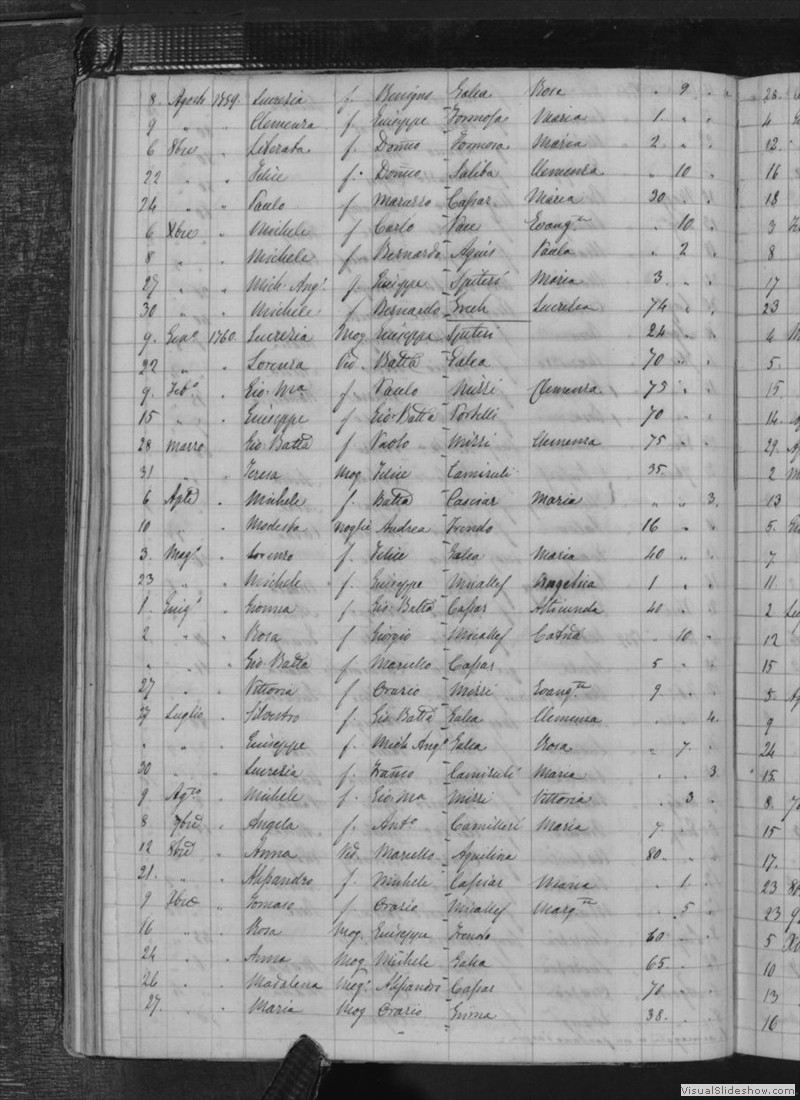 8. Agosto 1759. Lucrezia f. Benigno Galea Rosa " 9 "
9 " " Clemenza f Giuseppe Formosa Maria 1 " "
6 8bre " Liberata f. Domco Formosa Maria 2 " "
22 " " Felice f. Domco Saliba Clemenza " 10 "
24 " " Paulo f Maruzzo Caspar Maria 30 " "
6 Xbre " Michele f Carlo Pace Evangta " 10 "
8 " " Michele f Bernardo Agius Paula " 2 "
27 " " Mich. Ango f Giuseppe Spiteri Maria 3 " "
30 " " Michele f Bernardo Grech Lucrezia 74 " "
9. Geno 1760. Lucrezia Mog Giuseppe Spiteri 24 " "
22 " " Lorenza Vid. Batta Galea 70 " "
9. Febo " Gio. Ma f Paulo Mizzi Clemenza 73 " "
15 " " Giuseppe f Gio. Batta Portelli 70 " "
28 Marzo " Gio Batta f Paolo Mizzi Clemenza 75 " "
31 " " Teresa Mog Felice Camizuli 35.
6 " Michele f. Batta Casciar Maria " " 3.
10 " " Modesta Moglie Andrea Trendo 16 " "
3. Mago " Lorenzo f. Felice Galea Maria 40 " "
23 " " Michele f. Giuseppe Micallef Angelica 1 " "
1. Giugo " f Gio. Batta Caspar 40 " "
2 " " Rosa f Giorgio Micallef Catna " 10 "
" " " Gio Batta f. Marcello Caspar 5 " "
27 " " Vittoria f Orazio Mizzi Evangta 9 " "
27 Luglio " Silvestro f. Gio. Batta Galea Clemenza " " 4.
" " " Giuseppe f. Mich. Ango Galea Rosa " 7. "
30 " " Lucrezia f. Franco Camizuli Maria " " 3
9 Agto " Michele f. Gio. Ma Mizzi Vittoria " 3 "
8 7bre " Angela f. Anto Camilleri Maria 7 " "
12 8bre " Anna Vid. Marcello Aquilina 80 " "
21. " " Alessandro f. Michele Casciar Maria " 1. "
9 " Tomaso f Orazio Micallef Margta " 5 "
16 " " Rosa Mog. Giuseppe Trendo 60 " "
24 " " Anna Mog Michele Galea 65 " "
26 " " Madalena Mogo Alessandro Caspar 70 " "
27. " " Maria Mog Orazio 38. " "
23.
4
12
16
18
3
8
17
23
4
5.
15
14
29.
2
13
5.
7
11
2
12
15
5.
9
24
15.
8.
15
17.
23
23
5
10
13
16
VisualSlideshow.com